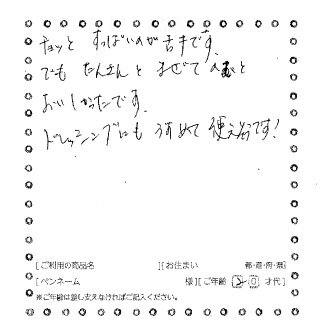 チョッと すっぱいのが苦手です。
でも たんさんと まぜて のむと
おいしかったです.
ドレッシングにも うすめて 使えそうです!
[ご利用の商品名 ][お住まい 都・道・府・県]
[ペンネーム 様][ご年齢 50 才代]
※ご年齢は差し支えなければご記入ください。